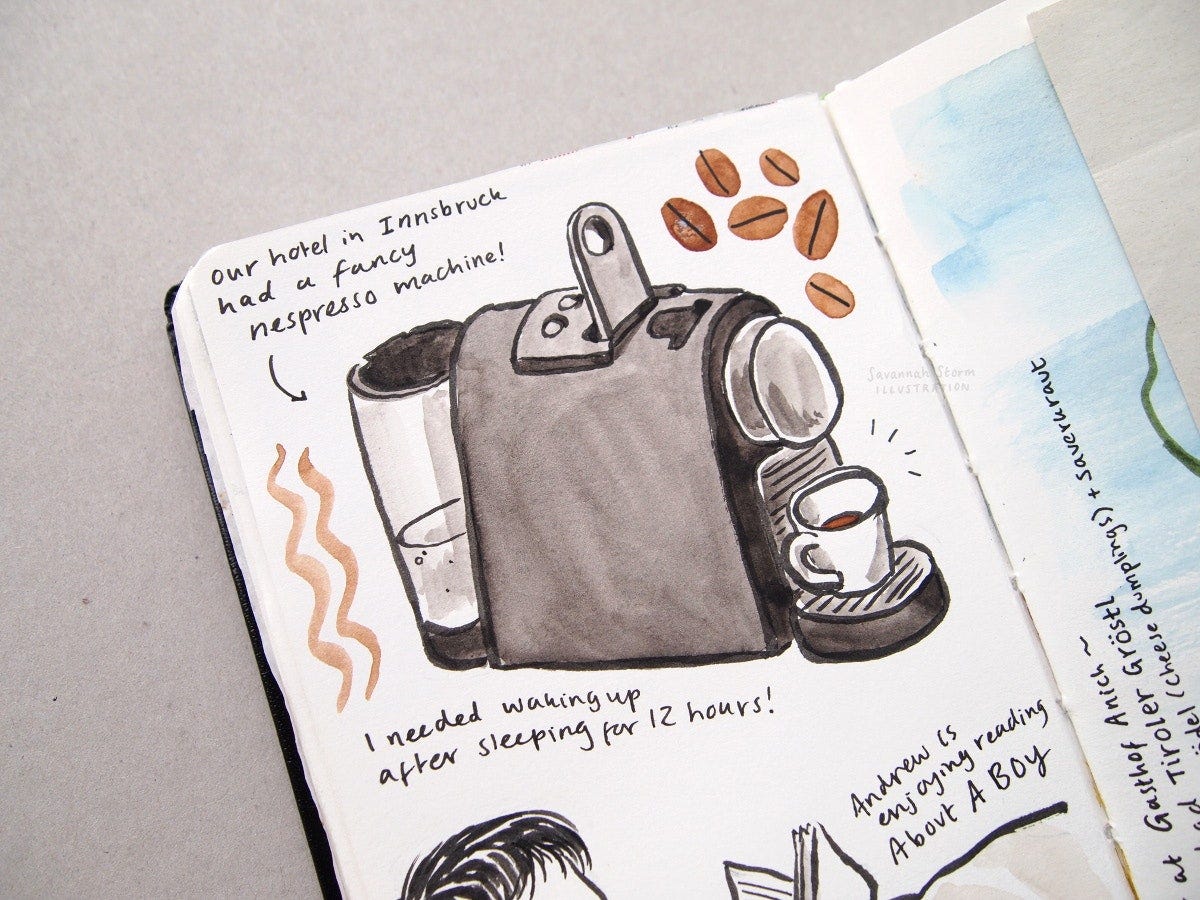 our hotel in Innsbruck
had a fancy
nespresso machine!
Savannah Storm
ILLUSTRATION
I needed waking up
after sleeping for 12 hours!
Andrew is
enjoying reading
About A BOY
at Gasthof Anich~
Tiroler Gröstl
(cheese dumpling(s) + saverkraut